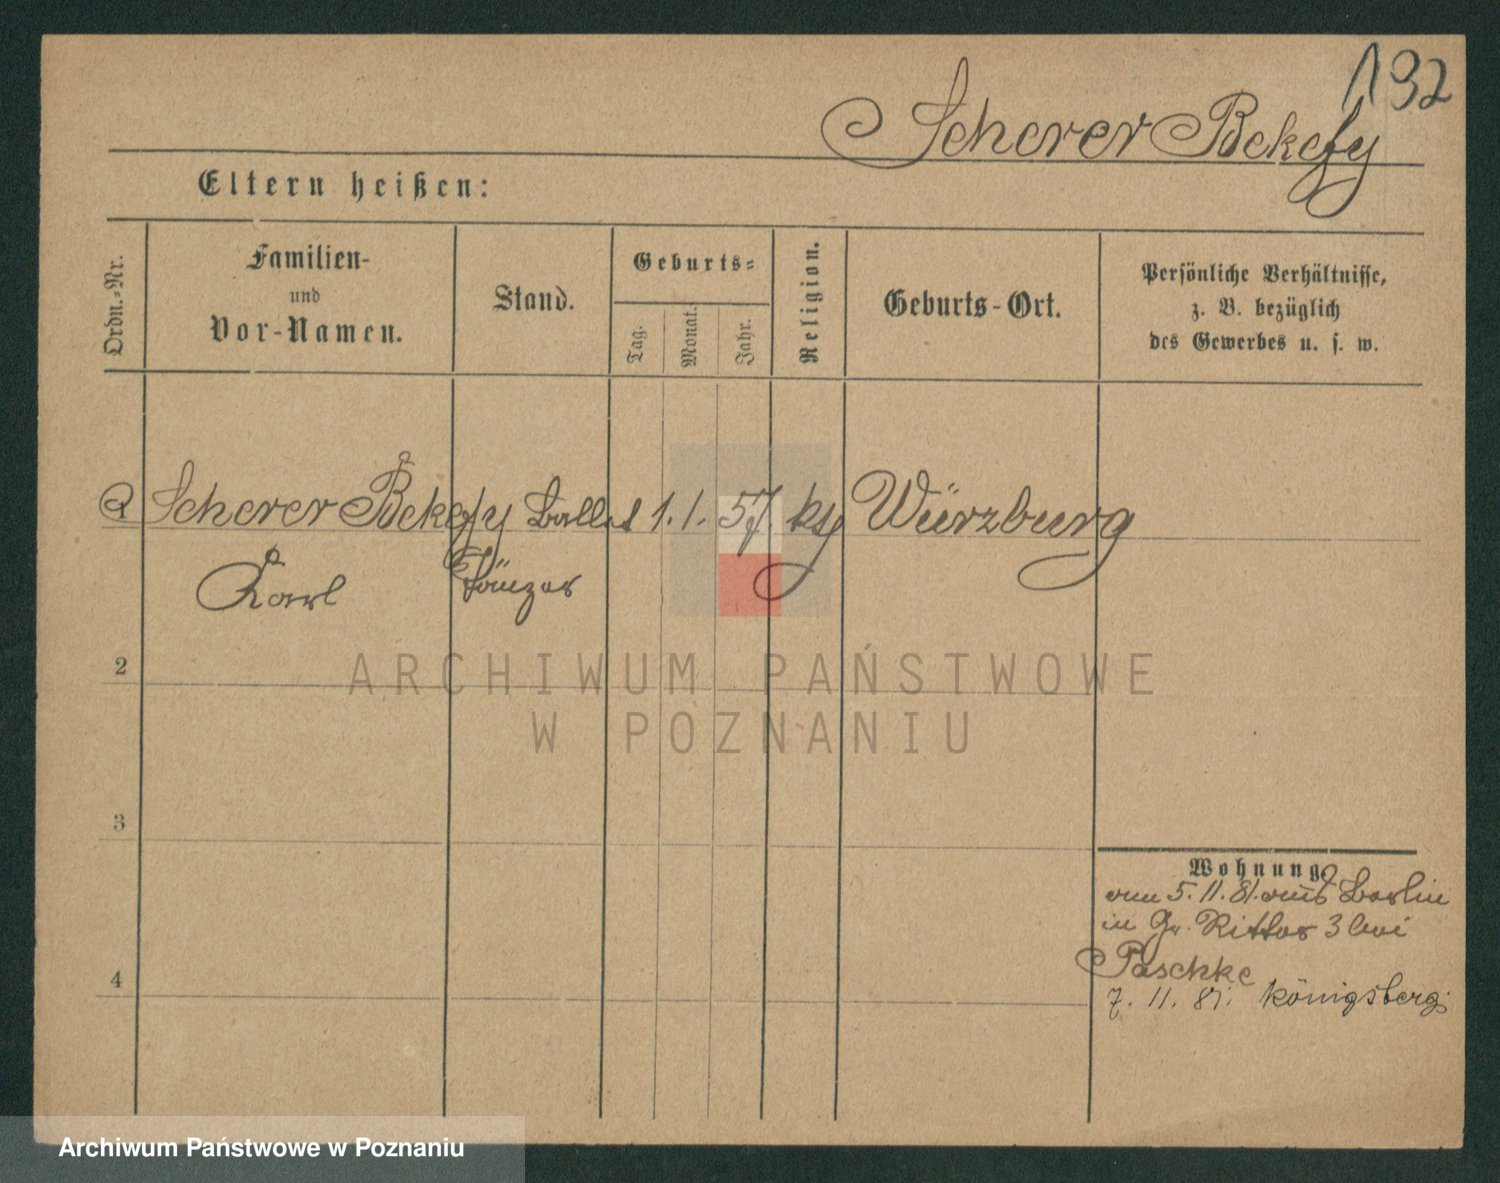 132
Scherer Bekefy
Eltern heißen:
Ordn.-Nr.
Familien-
und
Vor-Namen.
Stand.
Geburts-
Tag.
Monat.
Jahr.
Religion.
Geburts-Ort.
Persönliche Verhältnisse,
z. B. bezüglich
des Gewerbes u. s. w.
Scherer Bekefy Ballet 1. 1. 57 Würzburg
Karl Tänzer
ARCHIWUM PAŃSTWOWE
W POZNANIU
2
3
4
Wohnung.
am 5. 11. 81. aus Berlin
in Gr. Ritter 3 bei
Paschke
7. 11. 81. Königsberg.
Archiwum Państwowe w Poznaniu